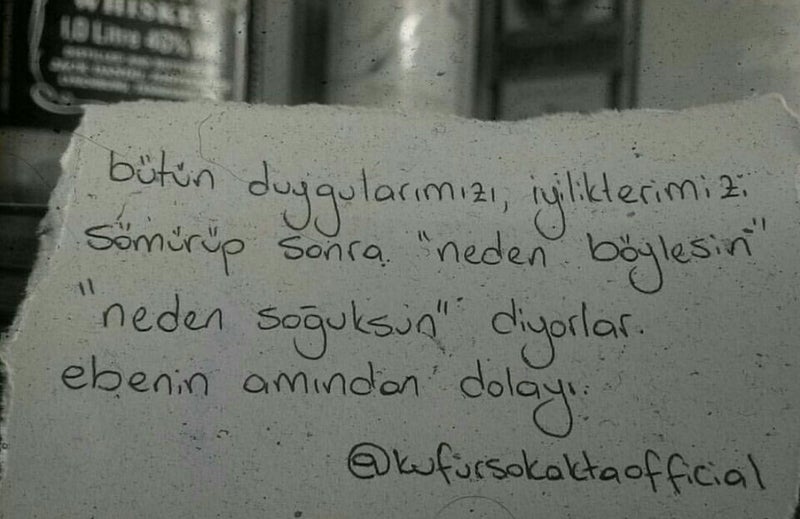 WHISKEY
1.0 Litre 43%
bütün duygularımızı, iyiliklerimizi
sömürüp sonra "neden böylesin"
"neden soğuksun" diyorlar.
ebenin amından dolayı.
@kufursokaktaofficial